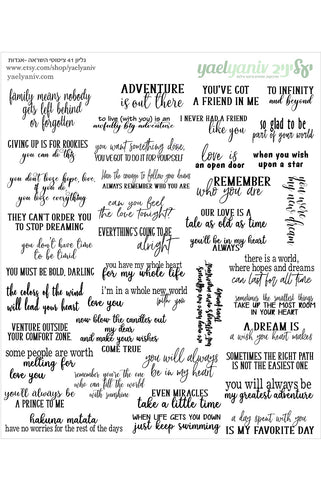 גליון 41 ציטוטי השראה -אגדות
www.etsy.com/shop/yaelyaniv
yaelyaniv.com
yaelyaniv יעל יניב
family means nobody
gets left behind
or forgotten
ADVENTURE
is out there
YOU'VE GOT
A FRIEND IN ME
TO INFINITY
and beyond
to live (with you) is an
awfully big adventure
I NEVER HAD A FRIEND
like you
so glad to be
part of your world
GIVING UP IS FOR ROOKIES
you can do this
you want something done,
YOU'VE GOT TO DO IT FOR YOURSELF
love is
an open door
when you wish
upon a star
you don't lose hope, love,
if you do,
you lose everything
has the courage to follow you heart
ALWAYS REMEMBER WHO YOU ARE
REMEMBER
who you are
you were my new dream
can you feel
the love tonight?
THEY CAN'T ORDER YOU
TO STOP DREAMING
OUR LOVE IS A
tale as old as time
EVERYTHING'S GOING TO BE
alright
you don't have time
to be timid
you'll be in my heart
ALWAYS
YOU MUST BE BOLD, DARLING
you have my whole heart
for my whole life
there is a world,
where hopes and dreams
can last for all time
the colors of the wind
will lead your heart
i'm in a whole new world
with you
love you
sometimes the smallest things
TAKE UP THE MOST ROOM
IN YOUR HEART
VENTURE OUTSIDE
YOUR COMFORT ZONE.
now blow the candles out
my dear
and make your wishes
COME TRUE
A DREAM IS
a wish you heart makes
some people are worth
melting for
love you
remember you're the one
who can fill the world
with sunshine
you will always
be in my heart
SOMETIMES THE RIGHT PATH
IS NOT THE EASIEST ONE
you'll always be
A PRINCE TO ME
EVEN MIRACLES
take a little time
you will always be
my greatest adventure
hakuna matata
have no worries for the rest of the days
WHEN LIFE GETS YOU DOWN
just keep swimming
a day spent with you
IS MY FAVORITE DAY